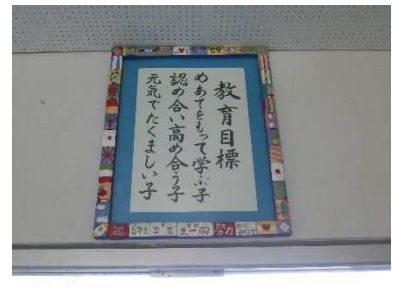 教育目標
めあてをもって学ぶ子
認め合い高め合う子
元気でたくましい子